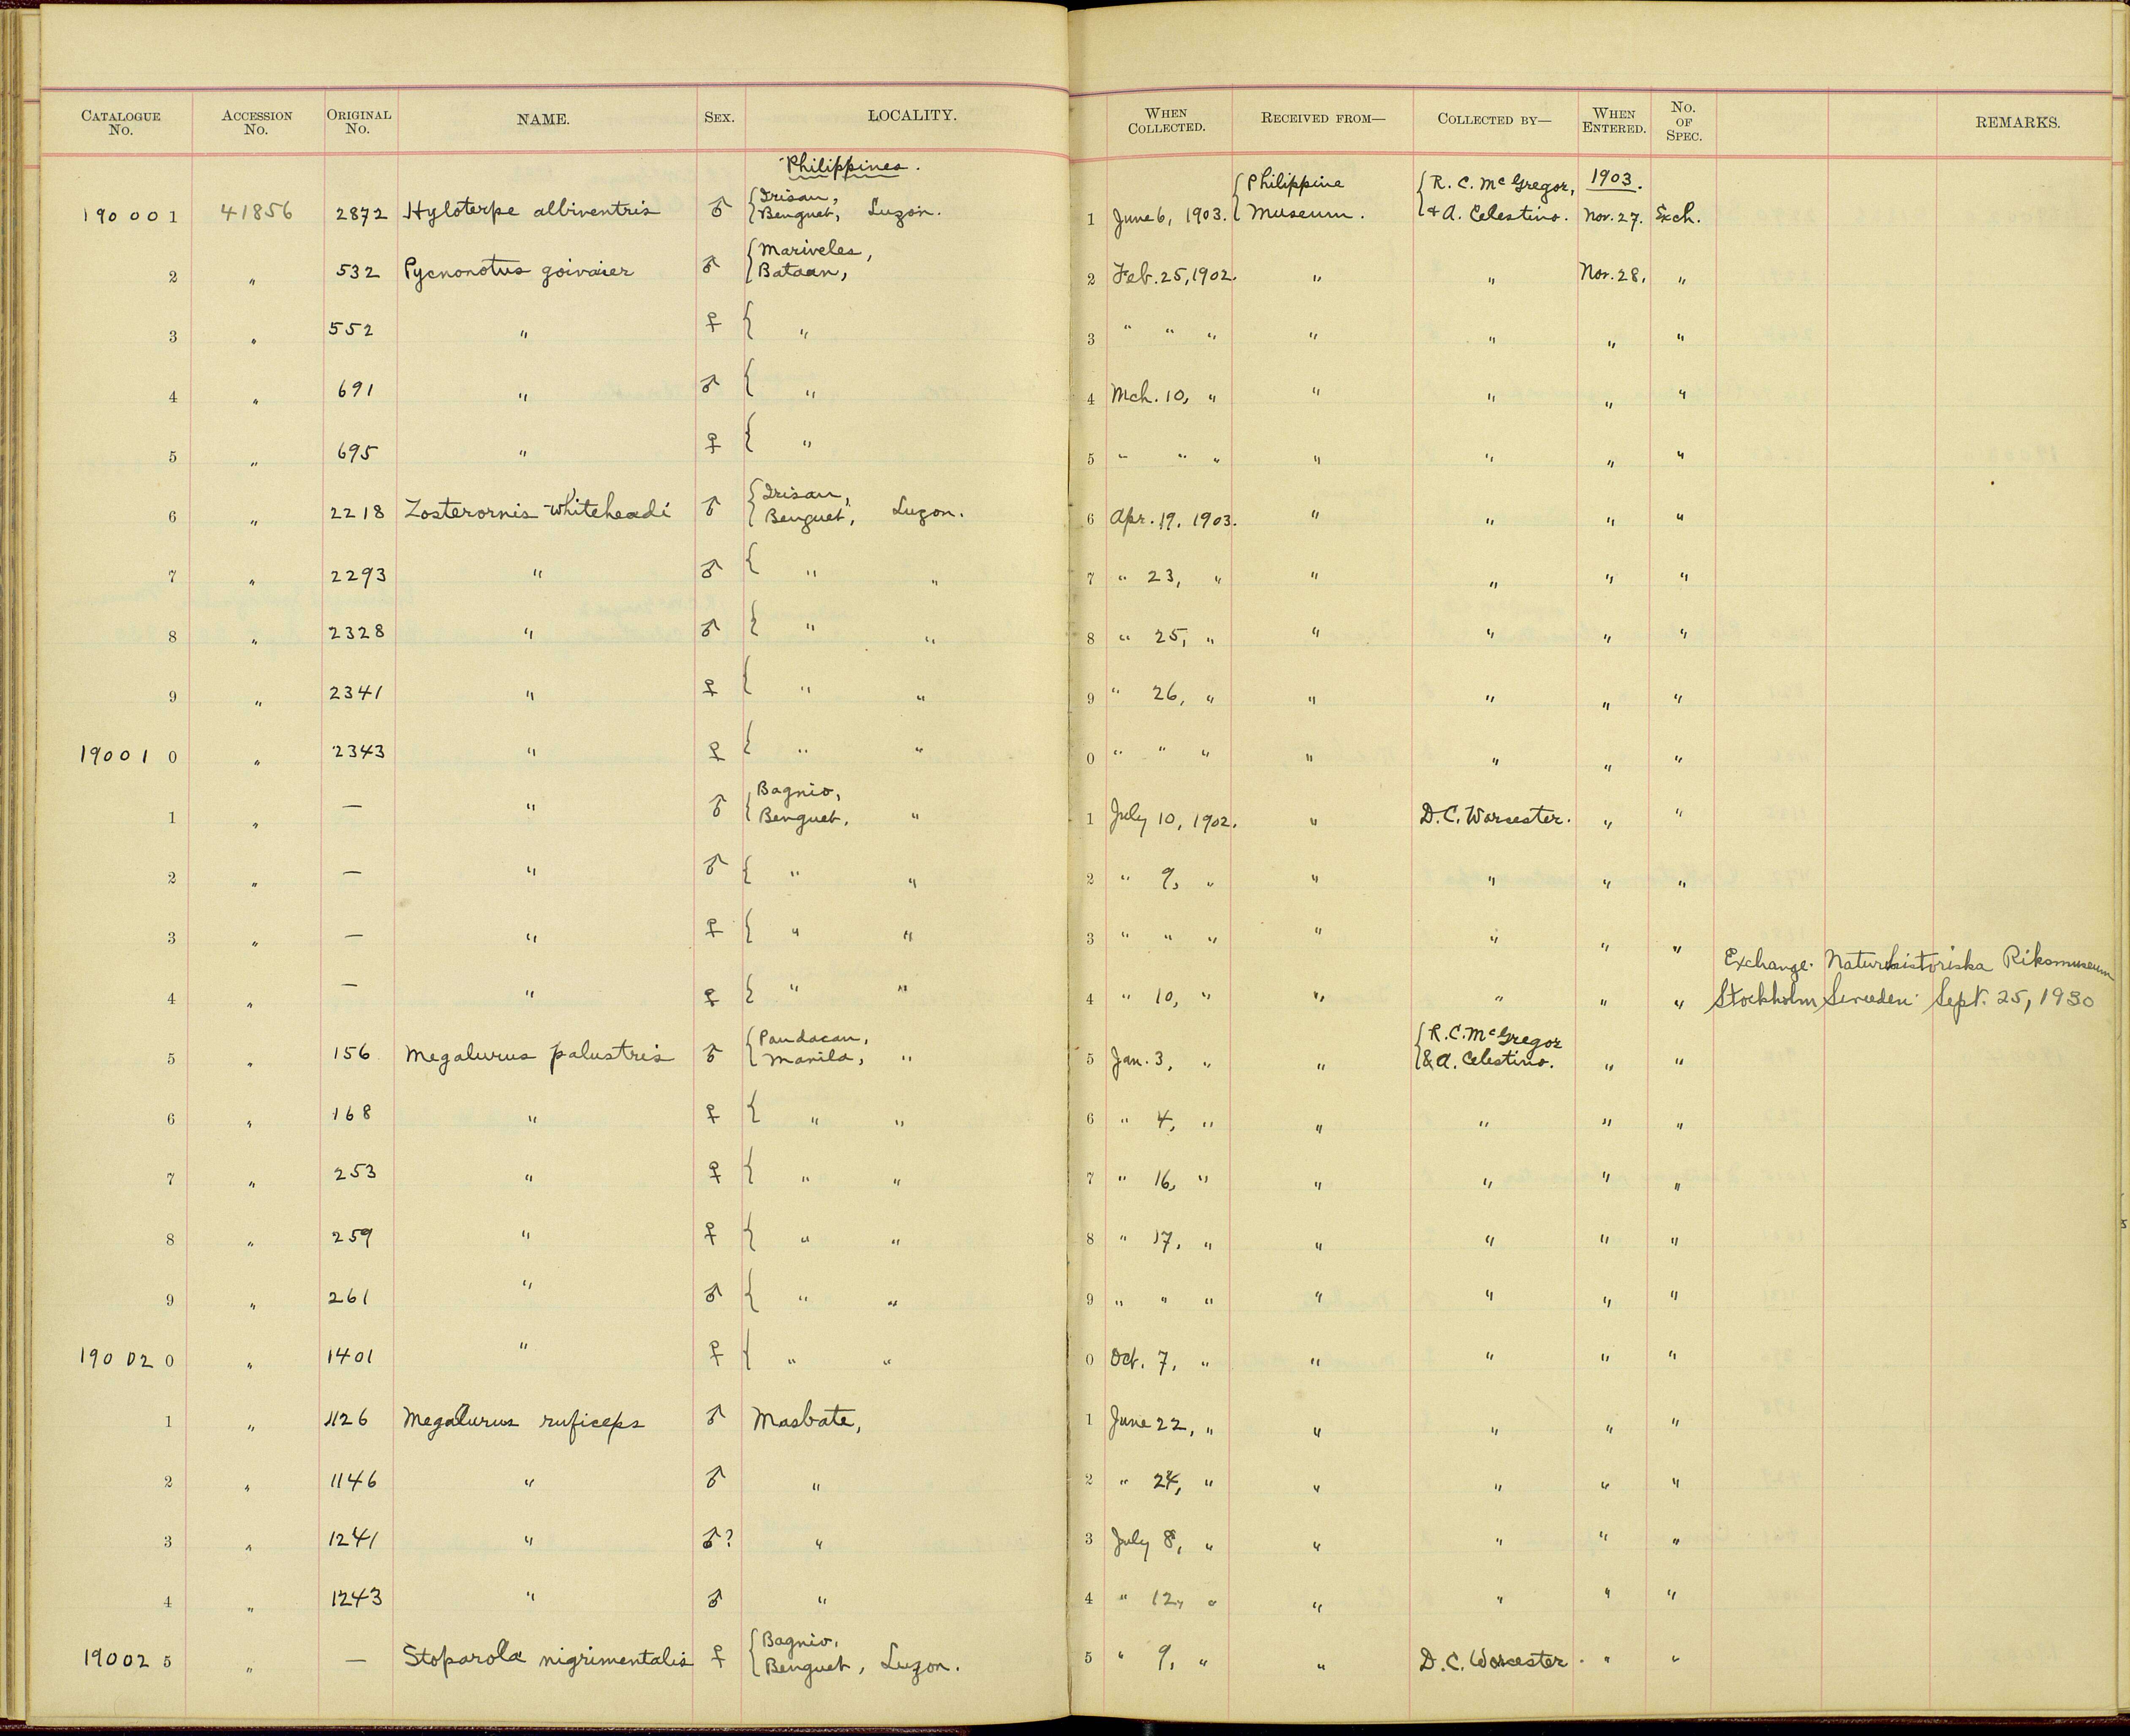 CATALOGUE No. ACCESSION No. ORIGINAL No. NAME. SEX. LOCALITY. WHEN COLLECTED. RECEIVED FROM— COLLECTED BY— WHEN ENTERED. No. OF SPEC. REMARKS.
Philippines.
190001 41856 2872 Hyloterpe albiventris ♂ { Irisan, Benguet, Luzon. 1 June 6, 1903. { Philippine Museum. { R. C. McGregor, & A. Celestino. 1903. Nov. 27. Exch.
2 " 532 Pycnonotus goivaier ♂ { Mariveles, Bataan, 2 Feb. 25, 1902. " " Nov. 28, "
3 " 552 " ♀ { " 3 " " " " " " "
4 " 691 " ♂ { " 4 Mch. 10, " " " " "
5 " 695 " ♀ { " 5 " " " " " " "
6 " 2218 Zosterornis whiteheadi ♂ { Irisan, Benguet, Luzon. 6 Apr. 19, 1903. " " " "
7 " 2293 " ♂ { " " 7 " 23, " " " " "
8 " 2328 " ♂ { " " 8 " 25, " " " " "
9 " 2341 " ♀ { " " 9 " 26, " " " " "
190010 " 2343 " ♀ { " " 0 " " " " " " "
1 " — " ♂ { Bagnio, Benguet, " 1 July 10, 1902. " D. C. Worcester. " "
2 " — " ♂ { " " 2 " 9, " " " " "
3 " — " ♀ { " " 3 " " " " " " "
4 " — " ♀ { " " 4 " 10, " " " " " Exchange. Naturhistoriska Riksmuseum
Stockholm Sweden Sept. 25, 1930
5 " 156 Megalurus palustris ♂ { Pandacan, Manila, " 5 Jan. 3, " " { R. C. McGregor & A. Celestino. " "
6 " 168 " ♀ { " " 6 " 4, " " " " "
7 " 253 " ♀ { " " 7 " 16, " " " " "
8 " 259 " ♀ { " " 8 " 17, " " " " "
9 " 261 " ♂ { " " 9 " " " " " " "
190020 " 1401 " ♀ { " " 0 Oct. 7, " " " " "
1 " 1126 Megalurus ruficeps ♂ Masbate, 1 June 22, " " " " "
2 " 1146 " ♂ " 2 " 24, " " " " "
3 " 1241 " ♂? " 3 July 8, " " " " "
4 " 1243 " ♂ " 4 " 12, " " " " "
190025 " — Stoparola nigrimentalis ♀ { Bagnio, Benguet, Luzon. 5 " 9, " " D. C. Worcester. " "